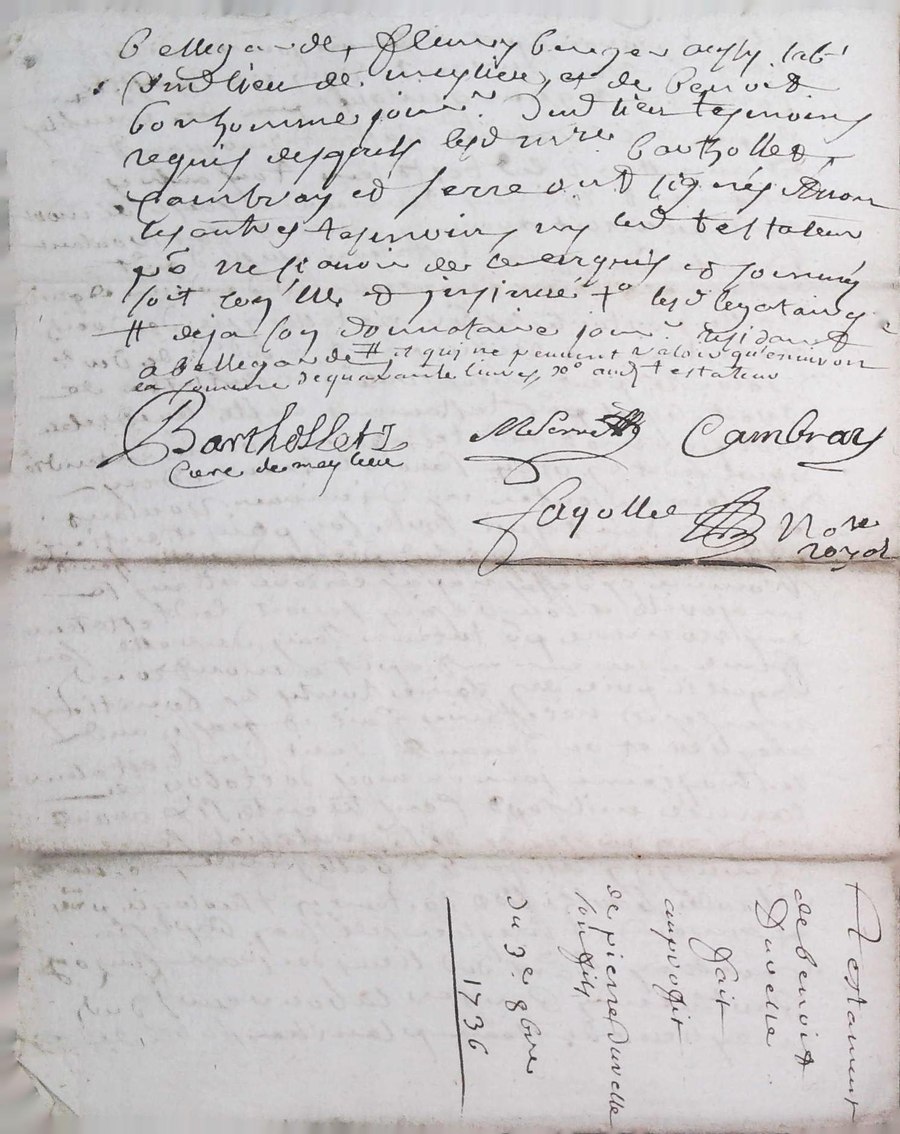 bellegarde, fleury berger aussy lab^r
dud lieu de meylieu, et de benoit
bonhomme jour^r. dud lieu tesmoins
requis desquels lesd m^re. bartholled,
Cambray et serre ont signés et non
les autres tesmoins ny led testateur
p^r ne scavoir de ce enquis et sommés
soit et insinue lesd legataires
# deja son donnataire jour^r. residant
a bellegarde # et qui ne peuvent valoir qu'environ
la somme de quarante livres aud testateur
Barthollet
Curé de meylieu
M Serre Cambray
fayolle No^re
royal
Testament
de benoit
Duvelle
fait
au proffit
de pierre duvelle
son fils
du 3^e 8bre
1736